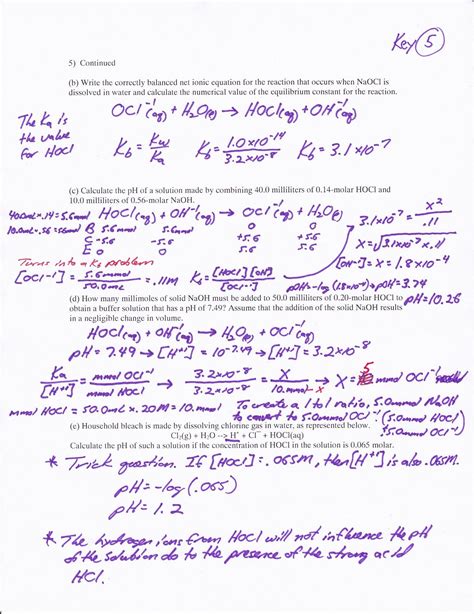 Key 5
5) Continued
(b) Write the correctly balanced net ionic equation for the reaction that occurs when NaOCl is
dissolved in water and calculate the numerical value of the equilibrium constant for the reaction.
OCl⁻¹(aq) + H₂O(l) → HOCl(aq) + OH⁻¹(aq)
The Ka is
the value
for HOCl
Kb = Kw/Ka Kb = 1.0x10⁻¹⁴/3.2x10⁻⁸ Kb = 3.1x10⁻⁷
(c) Calculate the pH of a solution made by combining 40.0 milliliters of 0.14-molar HOCl and
10.0 milliliters of 0.56-molar NaOH.
40.0mL x .14 = 5.6mmol HOCl(aq) + OH⁻¹(aq) → OCl⁻¹(aq) + H₂O(l)
10.0mL x .56 = 5.6mmol B 5.6 5.6 0 0
C -5.6 -5.6 +5.6 +5.6
E 0 0 5.6 5.6
3.1x10⁻⁷ = x²/.11
x = √3.1x10⁻⁷ x .11
[OH⁻¹] = x = 1.8x10⁻⁴
Turns into a Kb problem
[OCl⁻¹] = 5.6mmol/50.0mL = .11M Kb = [HOCl][OH⁻]/[OCl⁻¹] pOH = -log(1.8x10⁻⁴) pOH = 3.74
pH = 10.26
(d) How many millimoles of solid NaOH must be added to 50.0 milliliters of 0.20-molar HOCl to
obtain a buffer solution that has a pH of 7.49? Assume that the addition of the solid NaOH results
in a negligible change in volume.
HOCl(aq) + OH⁻¹(aq) → H₂O(l) + OCl⁻¹(aq)
pH = 7.49 → [H⁺¹] = 10⁻⁷·⁴⁹ → [H⁺¹] = 3.2x10⁻⁸
Ka/[H⁺¹] = mmol OCl⁻¹/mmol HOCl 3.2x10⁻⁸/3.2x10⁻⁸ = X/10.mmol-x → X = 5 mmol OCl⁻¹ needed
mmol HOCl = 50.0mL x .20M = 10.mmol
To create a 1 to 1 ratio, 5.0mmol NaOH
to convert to 5.0mmol OCl⁻¹ (5.0mmol HOCl)
(e) Household bleach is made by dissolving chlorine gas in water, as represented below.
Cl₂(g) + H₂O --> H⁺ + Cl⁻ + HOCl(aq)
Calculate the pH of such a solution if the concentration of HOCl in the solution is 0.065 molar.
* Trick question. If [HOCl] = .065M, then [H⁺] is also .065M.
pH = -log(.065)
pH = 1.2
* The hydrogen ions from HOCl will not influence the pH
of the solution do to the presence of the strong acid
HCl.